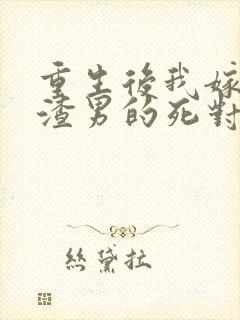 重生後我嫁
渣男的死對
絲黛拉